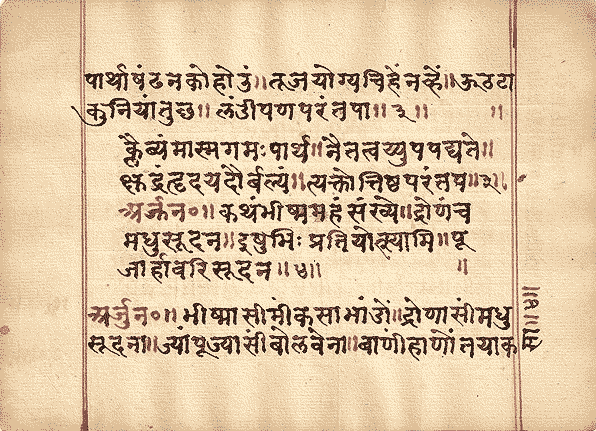 पार्था षंढ नको होतुं॥ तुज योग्यचि हें नव्हें॥ ऊठ टा
कुनियां तुछ॥ लंडीपण परंतपा॥ ३॥ ॥
क्लैव्यं मास्मगमः पार्थ॥ नैतत्वय्युपपद्यते॥
क्षुद्रं हृदयदौर्बल्यं॥ त्यक्तोत्तिष्ठ परंतप॥३॥
अर्जुन०॥ कथं भीष्ममहं संख्ये॥ द्रोणं च
मधुसूदन॥ इषुभिः प्रतियोत्स्यामि॥ पू
जार्हावरिसूदन॥४॥ ॥
अर्जुन०॥ भीष्मासीं मीं कसा भांडों॥ द्रोणासीं मधु
सूदना॥ ज्यां पूज्यासीं बोलवेना॥ बाणीं हाणों तया क